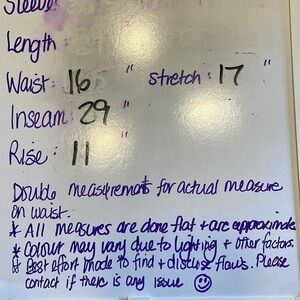 Sleeve:
Length:
Waist: 16 " Stretch: 17 "
Inseam: 29 "
Rise: 11 "
Double measurements for actual measure
on waist.
* All measures are done flat + are approximate
* Colour may vary due to lighting + other factors.
* Best effort made to find + disclose flaws. Please
contact if there is any issue ☺